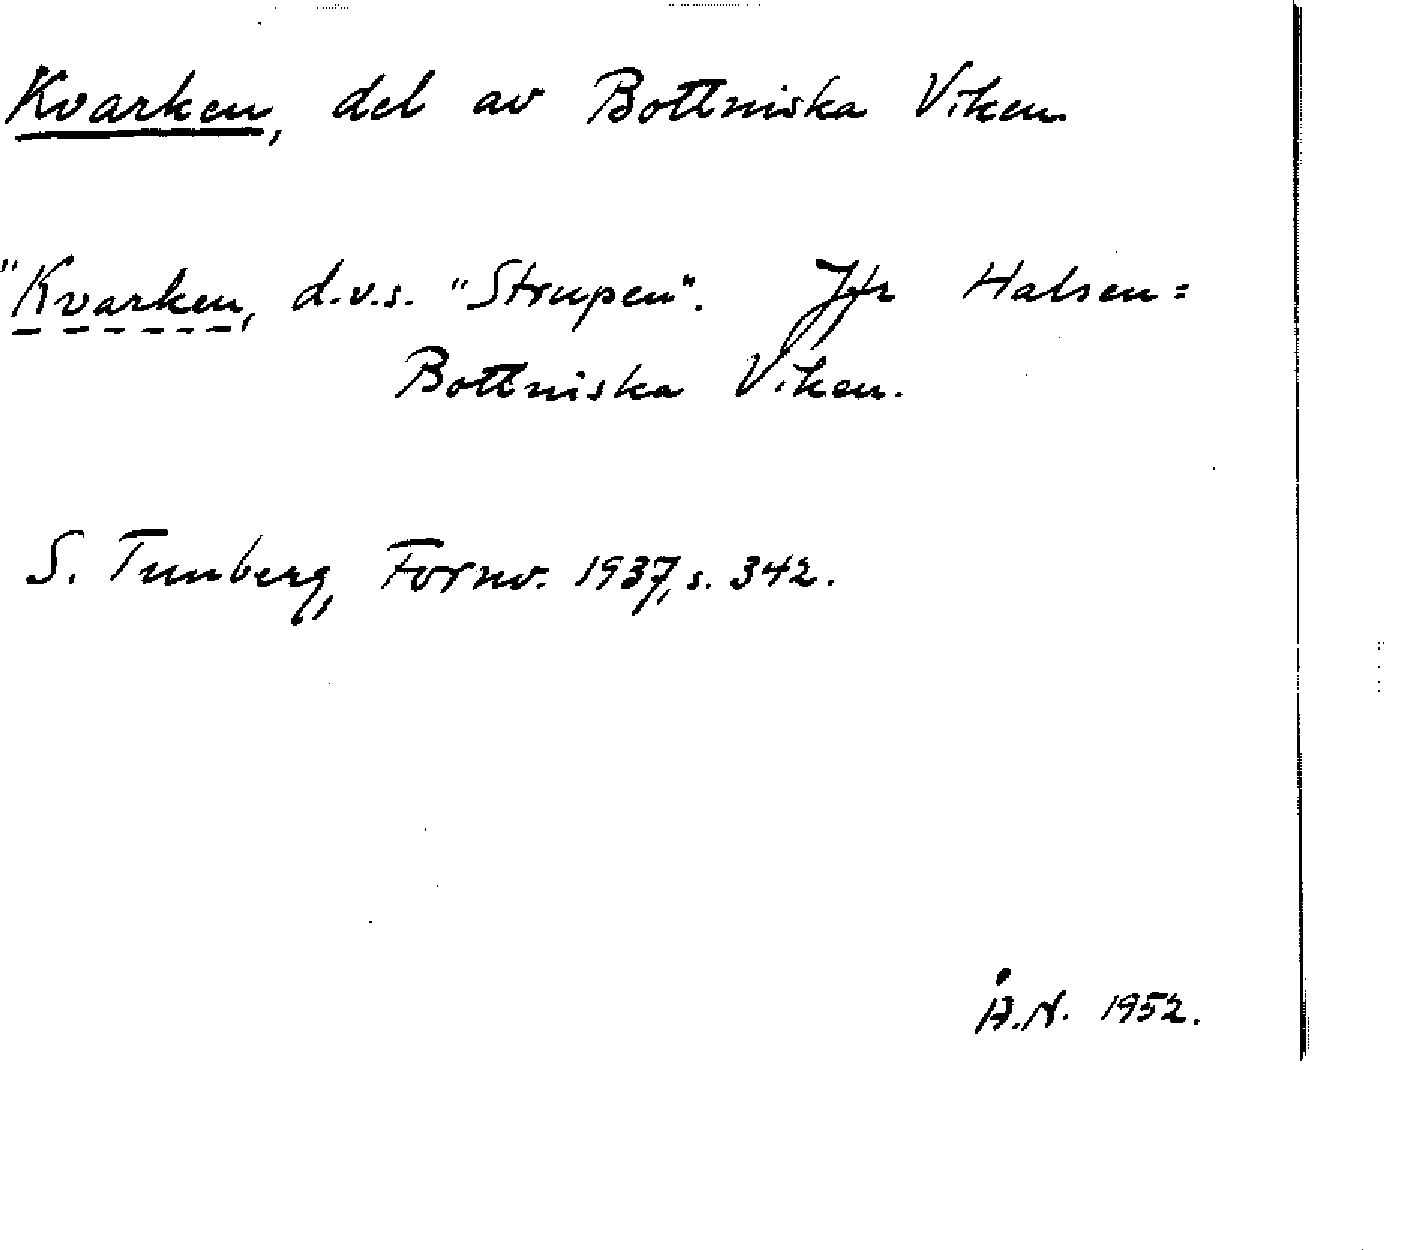 Kvarken, del av Bottniska Viken.
"Kvarken, d.v.s. "Strupen". Jfr Halsen =
Bottniska Viken.
S. Tunberg, Fornv. 1937, s. 342.
Å.N. 1952.